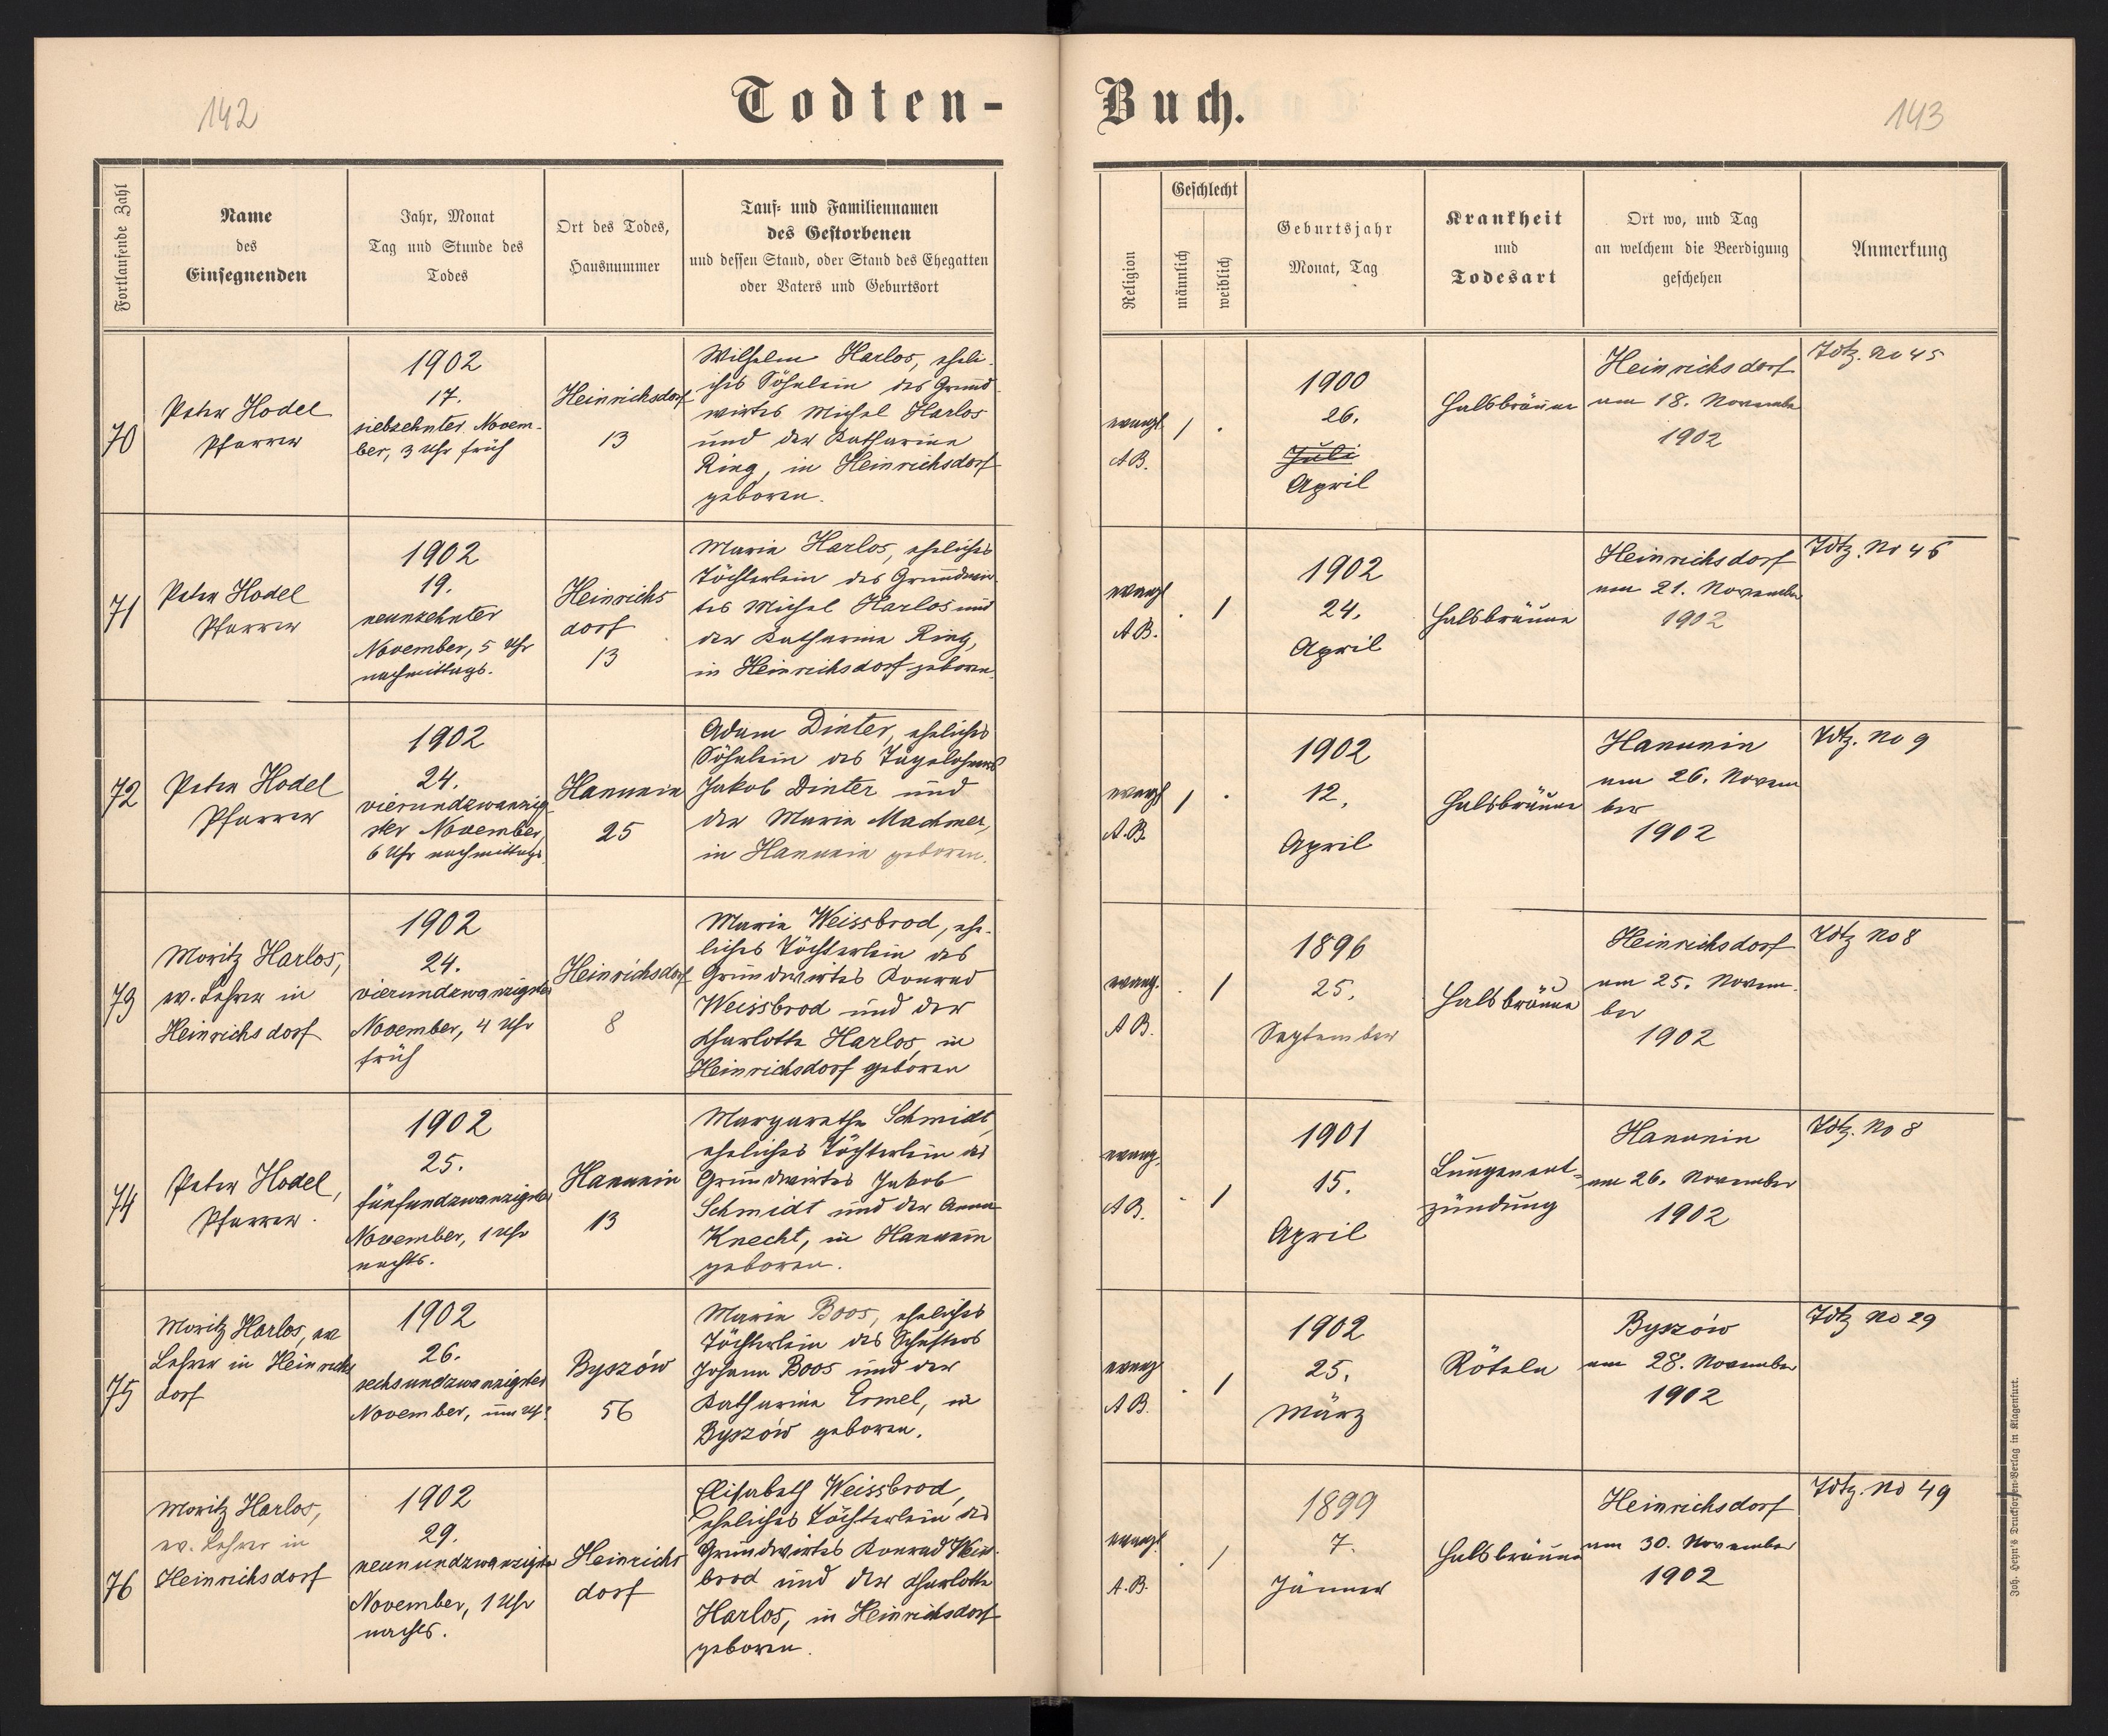 142
Todten-
Fortlaufende Zahl
Name
des
Einsegnenden
Jahr, Monat
Tag und Stunde des
Todes
Ort des Todes,
Hausnummer
Tauf- und Familiennamen
des Gestorbenen
und dessen Stand, oder Stand des Ehegatten
oder Vaters und Geburtsort
70
Peter Hodel
Pfarrer
1902
17.
siebzehnter Novem-
ber, 3 Uhr früh
Heinrichsdorf
13
Wilhelm Harlos, eheli-
ches Söhnlein des Grund-
wirtes Michel Harlos
und der Katharina
Ring, in Heinrichsdorf
geboren.
71
Peter Hodel
Pfarrer
1902
19.
neunzehnter
November, 5 Uhr
nachmittags.
Heinrichs
dorf
13
Maria Harlos, eheliches
Töchterlein des Grundwir-
tes Michel Harlos und
der Katharina Ring,
in Heinrichsdorf geboren.
72
Peter Hodel
Pfarrer
1902
24.
vierundzwanzig-
ster November,
6 Uhr nachmittags.
Hanunin
25
Adam Dinter, eheliches
Söhnlein des Tagelöhners
Jakob Dinter und
der Maria Machmer,
in Hanunin geboren.
73
Moritz Harlos,
ev. Lehrer in
Heinrichsdorf
1902
24.
vierundzwanzigster
November, 4 Uhr
früh
Heinrichsdorf
8
Maria Weissbrod, ehe-
liches Töchterlein des
Grundwirtes Konrad
Weissbrod und der
Charlotte Harlos, in
Heinrichsdorf geboren
74
Peter Hodel,
Pfarrer.
1902
25.
fünfundzwanzigster
November, 1 Uhr
nachts.
Hanunin
13
Margarethe Schmidt,
eheliches Töchterlein des
Grundwirtes Jakob
Schmidt und der Anna
Knecht, in Hanunin
geboren.
75
Moritz Harlos, ev
Lehrer in Heinrichs
dorf
1902
26.
sechsundzwanzigster
November, um Uhr
Byszów
56
Maria Boos, eheliches
Töchterlein des Schusters
Johann Boos und der
Katharina Ermel, in
Byszów geboren.
76
Moritz Harlos,
ev. Lehrer in
Heinrichsdorf
1902
29.
neunundzwanzigster
November, 1 Uhr
nachts.
Heinrichs
dorf
Elisabeth Weissbrod,
eheliches Töchterlein des
Grundwirtes Konrad Weiss-
brod und der Charlotte
Harlos, in Heinrichsdorf
geboren.
Buch.
143
Religion
Geschlecht
männlich
weiblich
Geburtsjahr
Monat, Tag
Krankheit
und
Todesart
Ort wo, und Tag
an welchem die Beerdigung
geschehen
Anmerkung
evangl
A.B.
1
.
1900
26.
Juli
April
Halsbräune
Heinrichsdorf
am 18. November
1902
Tdtz. No 45
evangl
A.B.
.
1
1902
24.
April
Halsbräune
Heinrichsdorf
am 21. November
1902
Tdtz. No 46
evangl
A.B.
1
.
1902
12.
April
Halsbräune
Hanunin
am 26. Novem
ber
1902
Tdtz. No 9
evang.
A.B.
.
1
1896
25.
September
Halsbräune
Heinrichsdorf
am 25. Novem-
ber
1902
Tdtz No 8
evang.
A.B.
.
1
1901
15.
April
Lungenent-
zündung
Hanunin
am 26. November
1902
Tdtz. No 8
evang
A.B.
.
1
1902
25.
März
Röteln
Byszów
am 28. November
1902
Tdtz No 29
evangl.
A.B.
.
1
1899
7.
Jänner
Halsbräune
Heinrichsdorf
am 30. November
1902
Tdtz. No 49
Joh. Heyn's Drucksorten-Verlag in Klagenfurt.